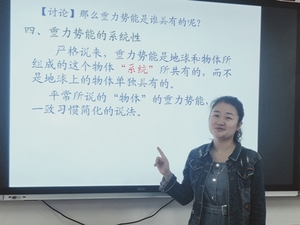 【讨论】那么重力势能是谁具有的呢？
四、重力势能的系统性
严格说来，重力势能是地球和物体所
组成的这个物体“系统”所共有的，而不
是地球上的物体单独具有的。
平常所说的“物体”的重力势能，
一致习惯简化的说法。